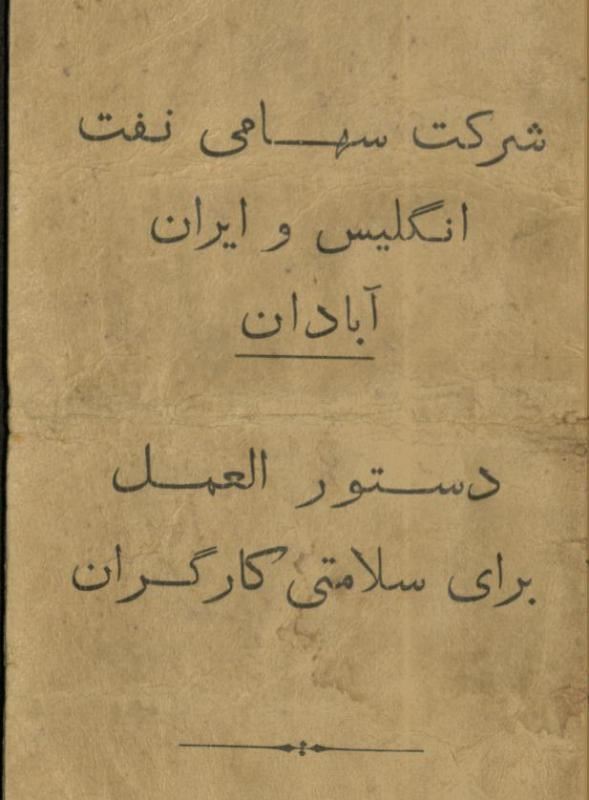 شرکت سهامی نفت
انگلیس و ایران
آبادان
دستور العمل
برای سلامتی کارگران